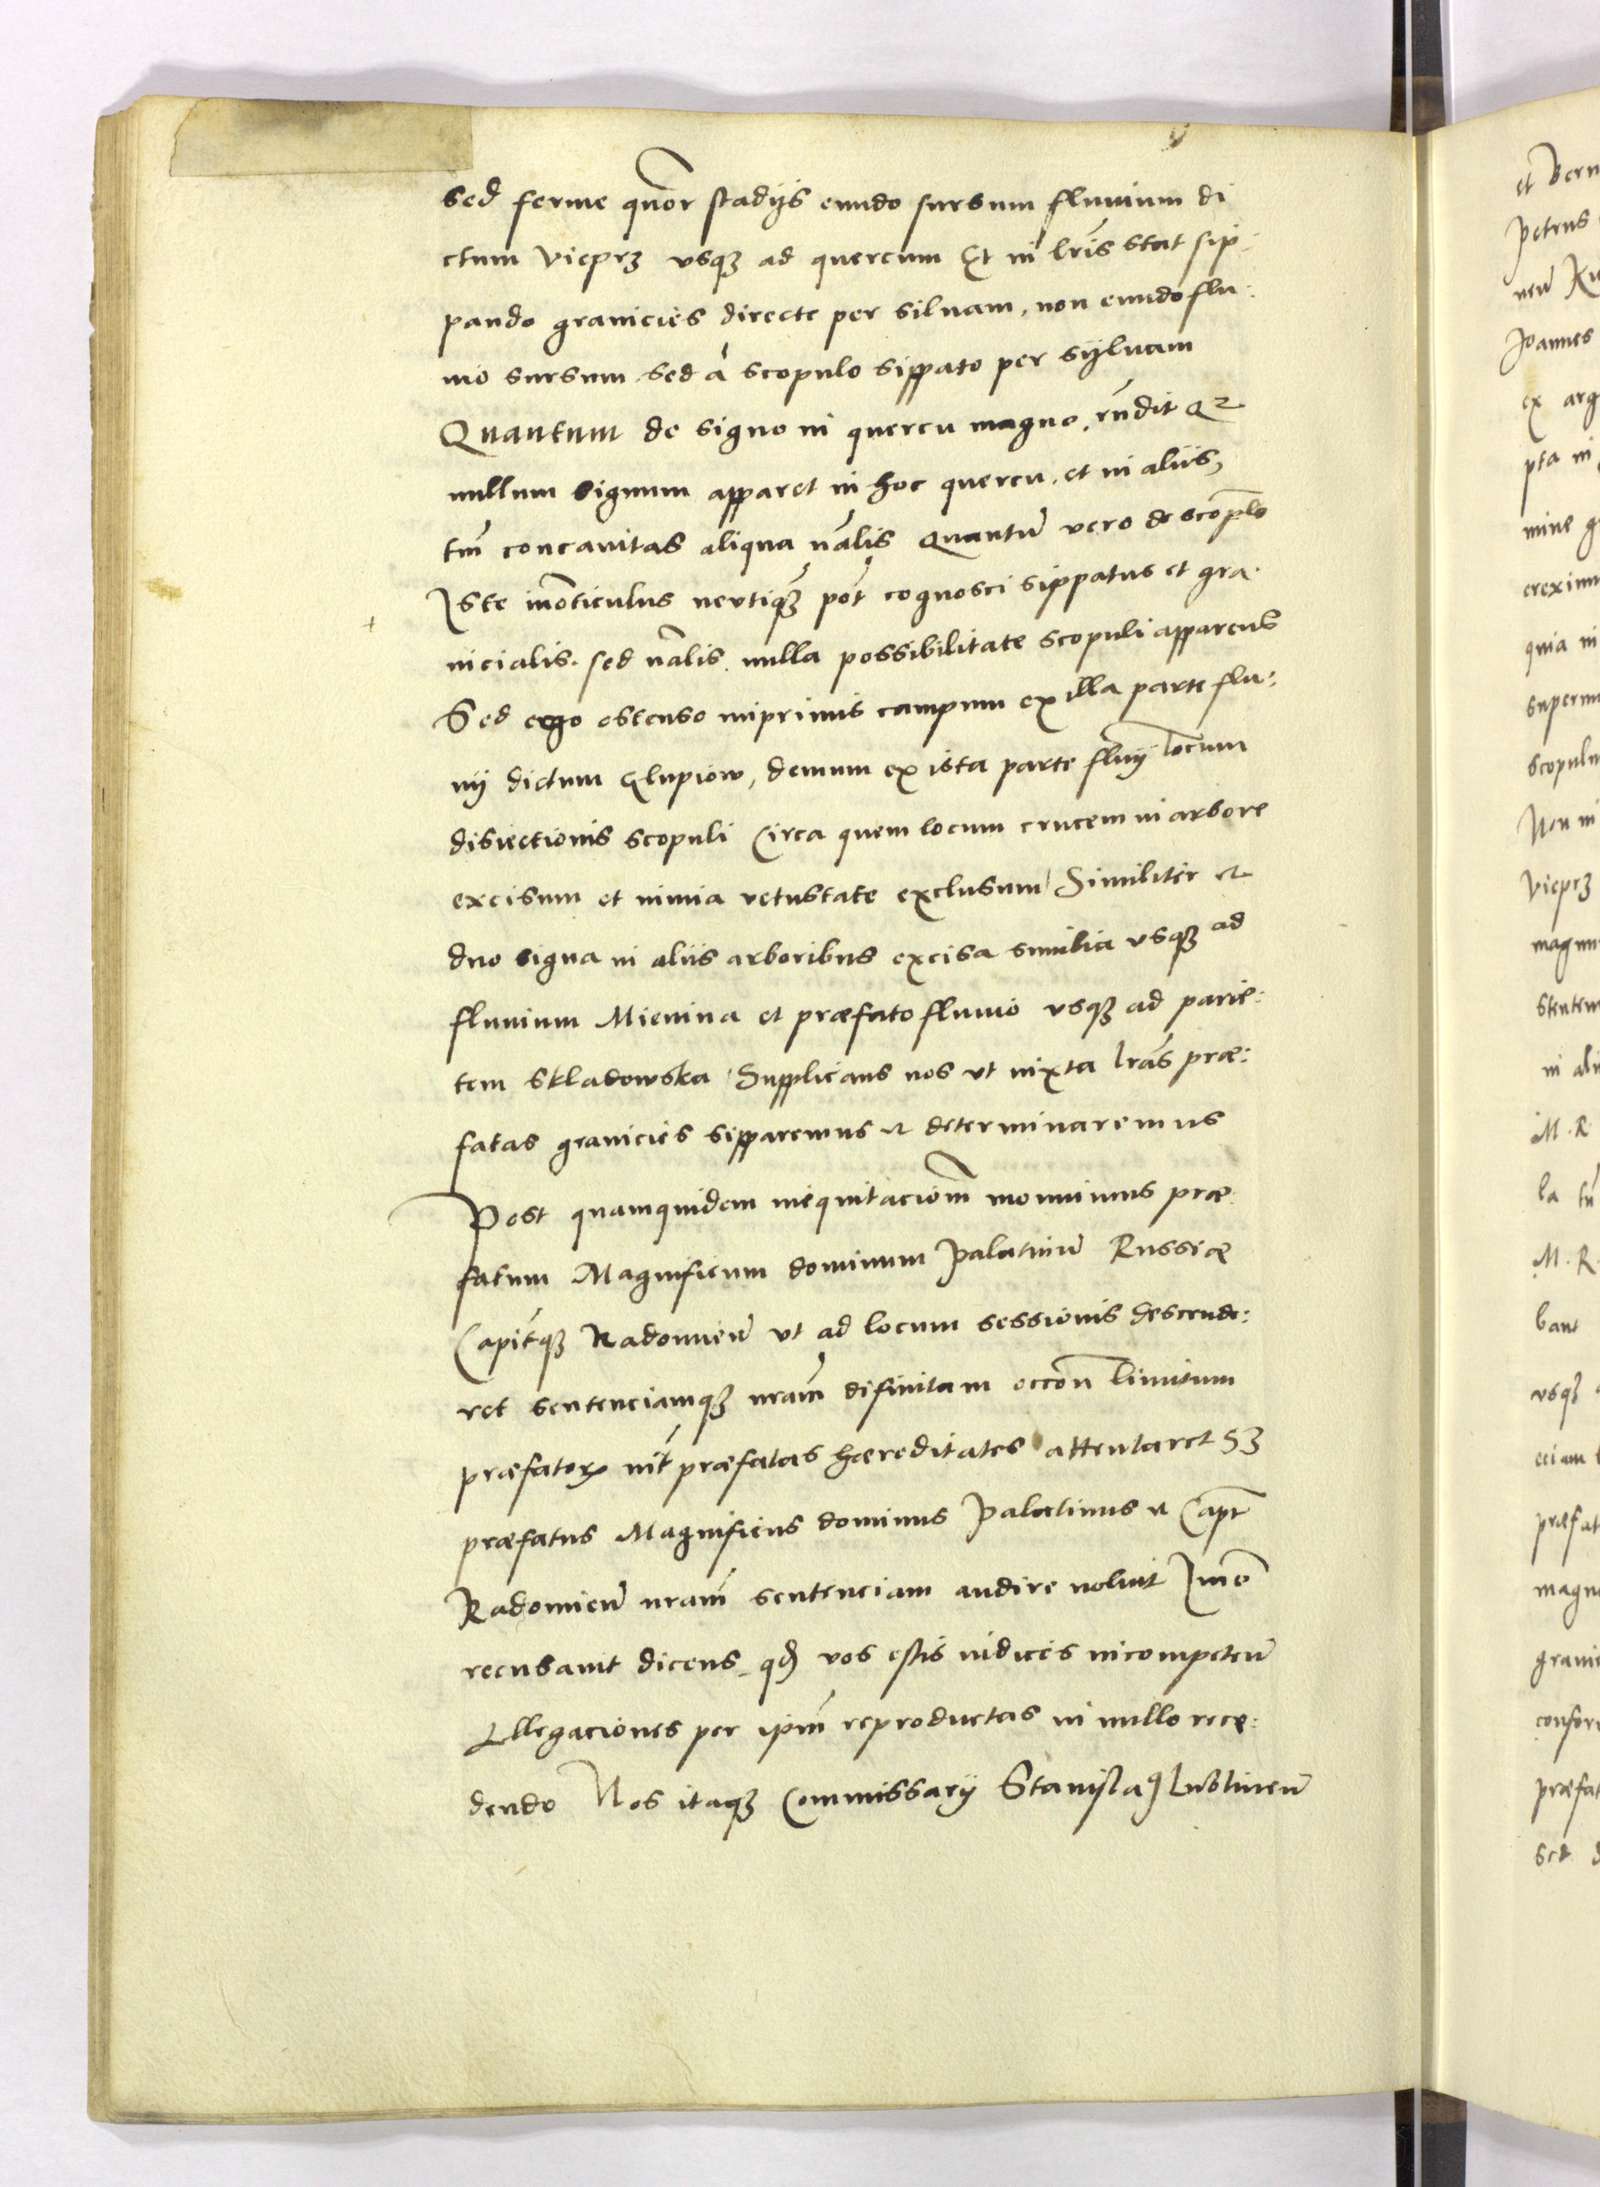 sed ferme quor stadijs eundo sursum fluuium di
ctum Vieprz vsqz ad quercum Et in lris stat sip:
pando granicies directe per siluam, non eundo flu:
uio sursum sed a scopulo sippato per syluam
Quantum de signo in quercu magno, rndit Qz
nullum signum apparet in hoc quercu, et in aliis,
tm concauitas aliqua nalis Quantu vero de scoplo
Iste monticulus neutiqz pot cognosci sippatus et gra:
nicialis. sed nalis. nulla possibilitate scopuli apparen
Sed ego ostenso inprimis campum ex illa parte flu:
uij dictum Glupiow, demum ex ista parte fluij locum
disiectionis scopuli Circa quem locum crucem in arbore
excisum et nimia vetustate exclusum Similiter et
duo signa in aliis arboribus excisa similia vsqz ad
fluuium Mienina et præfato fluuio vsqz ad parie:
tem Skladowska Supplicans nos vt iuxta lras præ:
fatas granicies sipparemus et determinaremus
Post quamquidem inequitaciom monuimus præ
fatum Magnificum dominum Palatinu Russiæ
Capitqz Radomien vt ad locum sessionis descende:
ret sentenciamqz nram difinitam occon limitum
præfator int præfatas hæreditates attentaret Sz
præfatus Magnificus dominus Palatinus et Capt
Radomien nram sentenciam audire noluit Imo
recusauit dicens, qd vos estis iudices incompeten
Allegaciones per ipm reproductas in nullo rece:
dendo Nos itaqz Commissarij Stanisla9 Lublinen